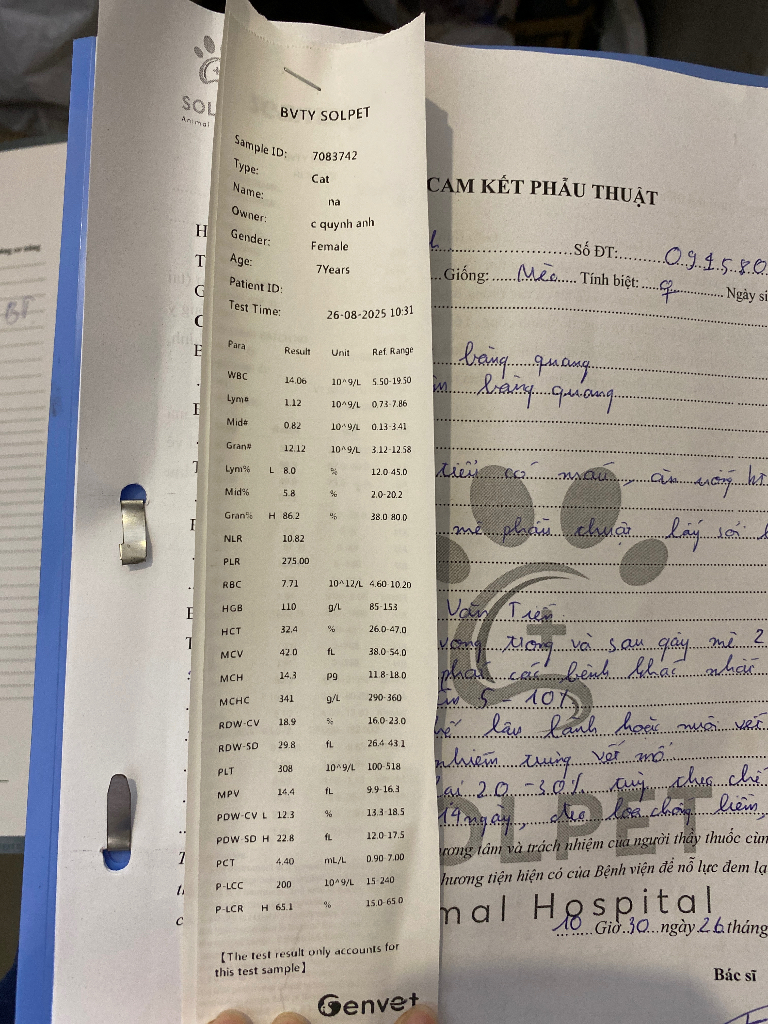 SOL
Animal
BVTY SOLPET
Sample ID: 7083742
Type: Cat
Name: na
Owner: c quynh anh
Gender: Female
Age: 7Years
Patient ID:
Test Time: 26-08-2025 10:31
Para Result Unit Ref. Range
WBC 14.06 10^9/L 5.50-19.50
Lym# 1.12 10^9/L 0.73-7.86
Mid# 0.82 10^9/L 0.13-3.41
Gran# 12.12 10^9/L 3.12-12.58
Lym% L 8.0 % 12.0-45.0
Mid% 5.8 % 2.0-20.2
Gran% H 86.2 % 38.0-80.0
NLR 10.82
PLR 275.00
RBC 7.71 10^12/L 4.60-10.20
HGB 110 g/L 85-153
HCT 32.4 % 26.0-47.0
MCV 42.0 fL 38.0-54.0
MCH 14.3 pg 11.8-18.0
MCHC 341 g/L 290-360
RDW-CV 18.9 % 16.0-23.0
RDW-SD 29.8 fL 26.4-43.1
PLT 308 10^9/L 100-518
MPV 14.4 fL 9.9-16.3
PDW-CV L 12.3 % 13.3-18.5
PDW-SD H 22.8 fL 12.0-17.5
PCT 4.40 mL/L 0.90-7.00
P-LCC 200 10^9/L 15-240
P-LCR H 65.1 % 15.0-65.0
【The test result only accounts for
this test sample】
Genvet
CAM KẾT PHẪU THUẬT
Số ĐT: 091580
Giống: Mèo Tính biệt: ♀ Ngày si
bàng quang
bàng quang
tiểu có máu, ăn uống kt
mê phẫu thuật lấy sỏi
Văn Tiến
vong trong và sau gây mê 2
phải các bệnh khác nhau
5-10%
lâu lành hoặc nuôi vết
nhiễm trùng vết mổ
20-30% tuỳ theo chế
14 ngày, đeo loa chống liếm,
ương tâm và trách nhiệm của người thầy thuốc cùn
hương tiện hiện có của Bệnh viện để nỗ lực đem lạ
OLPET
mal Hospital
10 Giờ 30 ngày 26 tháng
Bác sĩ